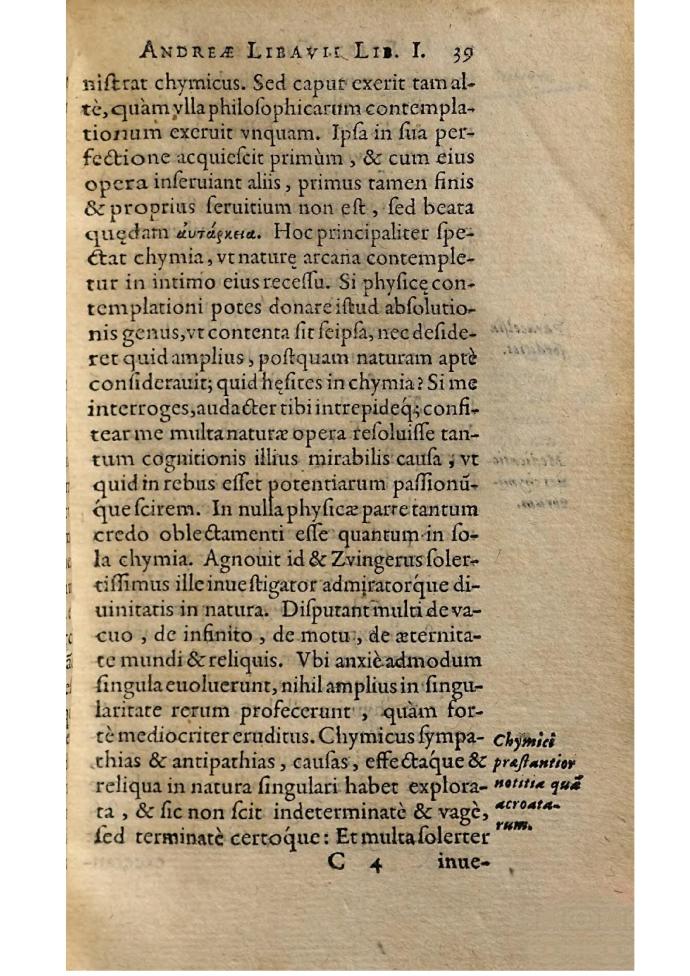 ANDREÆ LIBAVII LIB. I. 39
niſtrat chymicus. Sed caput exerit tam al-
tè, quàm vlla philoſophicarum contempla-
tionum exeruit vnquam. Ipſa in ſua per-
fectione acquieſcit primùm, & cum eius
opera inſeruiant aliis, primus tamen finis
& proprius ſeruitium non eſt, ſed beata
quędam αὐτάρκεια. Hoc principaliter ſpe-
ctat chymia, vt naturę arcana contemple-
tur in intimo eius receſſu. Si phyſicę con-
templationi potes donare iſtud abſolutio-
nis genus, vt contenta ſit ſeipſa, nec deſide-
ret quid amplius, poſtquam naturam aptè
conſiderauit; quid hęſites in chymia? Si me
interroges, audacter tibi intrepideq́; confi-
tear me multa naturæ opera reſoluiſſe tan-
tum cognitionis illius mirabilis cauſa, vt
quid in rebus eſſet potentiarum paſſionū-
q́ue ſcirem. In nulla phyſicæ parte tantum
credo oblectamenti eſſe quantum in ſo-
la chymia. Agnouit id & Zvingerus ſoler-
tiſſimus ille inueſtigator admiratorq́ue di-
uinitatis in natura. Diſputant multi de va-
cuo, de infinito, de motu, de æternita-
te mundi & reliquis. Vbi anxiè admodum
ſingula euoluerunt, nihil amplius in ſingu-
laritate rerum profecerunt, quàm for-
tè mediocriter eruditus. Chymicus ſympa-
thias & antipathias, cauſas, effectáque &
reliqua in natura ſingulari habet explora-
ta, & ſic non ſcit indeterminatè & vagè,
ſed terminatè certoq́ue: Et multa ſolerter
Chymici
præſtantior
notitia quā
acroata-
rum.
C 4 inue-